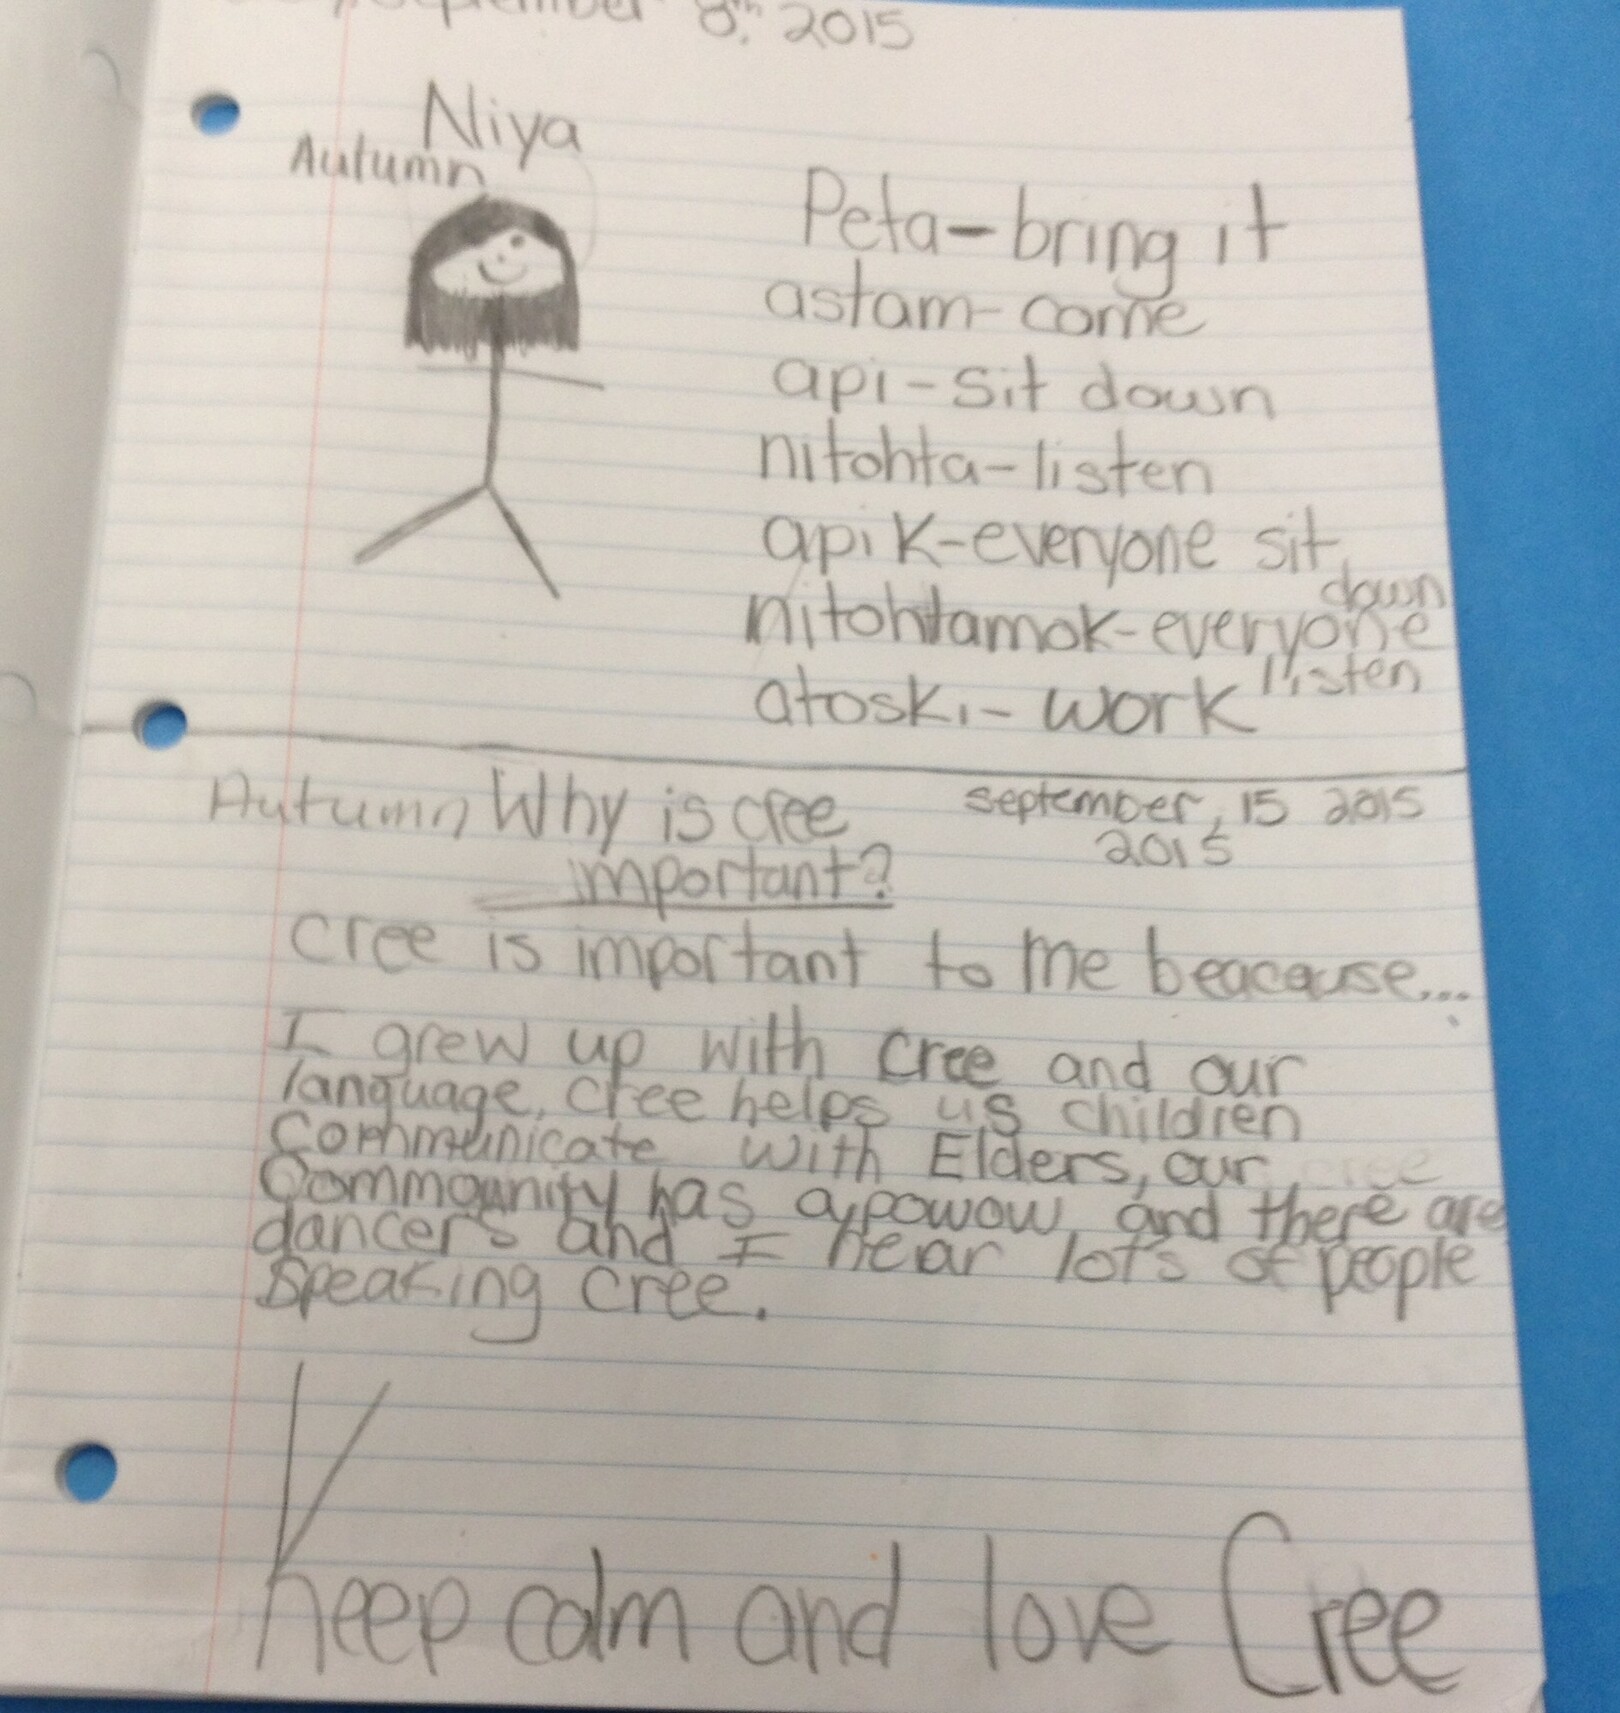 September 8th, 2015
Niya
Autumn
Peta-bring it
astam-come
api-sit down
nitohta-listen
apik-everyone sit
down
nitohtamok-everyone
listen
atoski-work
Autumn Why is cree
important?
september, 15 2015
2015
cree is important to me beacause...
I grew up with cree and our
language, cree helps us children
Communicate with Elders, our cree
Commounity has a powow, and there are
dancers and I hear lots of people
speaking cree.
Keep calm and love Cree